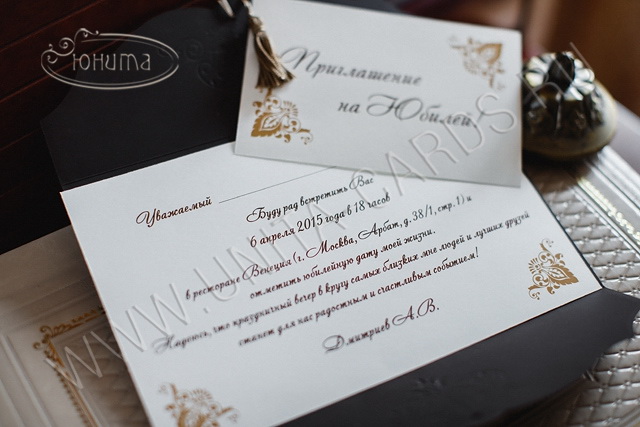 Юнита
Приглашение
на Юбилей!
Уважаемый
Буду рад встретить Вас
6 апреля 2015 года в 18 часов
в ресторане Венеция (г. Москва, Арбат, д. 38/1, стр. 1) и
отметить юбилейную дату моей жизни.
Надеюсь, что праздничный вечер в кругу самых близких мне людей и лучших друзей
станет для нас радостным и счастливым событием!
Дмитриев А.В.